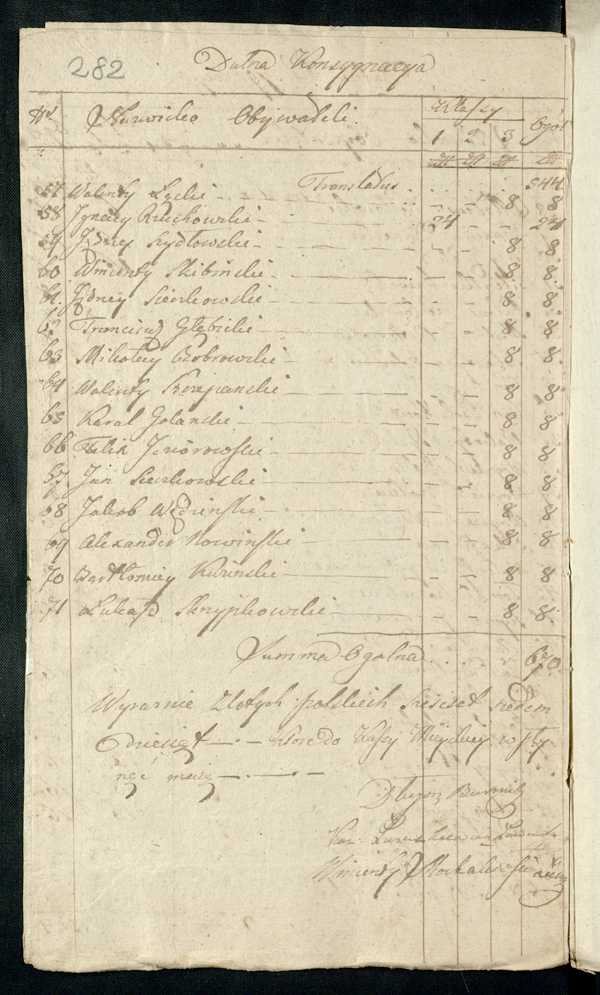 282 Dalsza Konsygnacya
Nro Nazwisko Obywateli Klassy Ogół
1 2 3
zł zł zł zł
Translatus 544
57 Walenty — — 8 8
58 Ignacy 24 — — 24
59 Jędrzey Szydłowski — — 8 8
60 Wincenty Skibinski — — 8 8
61 Jędrzey Sierkowski — — 8 8
62 Franciszek Głębicki — — 8 8
63 Mikołay Bobrowski — — 8 8
64 Walenty Szczepanski — — 8 8
65 Karol Golanski — — 8 8
66 Felix Jeziorowski — — 8 8
67 Jan Sierkowski — — 8 8
68 Jakob Wędzinski — — 8 8
69 Alexander Nowinski — — 8 8
70 Bartłomiey — — 8 8
71 Łukasz Skrzypkowski — — 8 8
Summa Ogolna 670
Wyraznie Złotych polskich sześćset siedem
dziesiąt — które do Kassy Mieyskiey wpły
nąć maią
Długosz Burmistrz
Wincenty